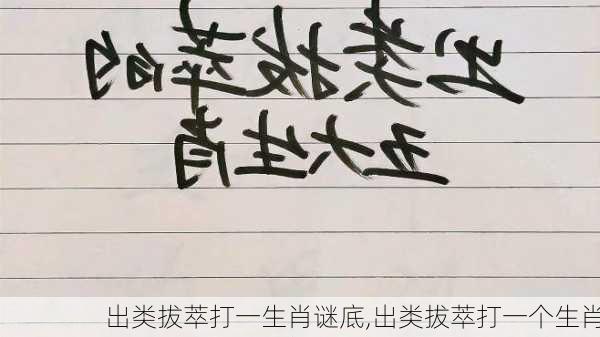 出类拔萃的
五大生肖
出类拔萃打一生肖谜底,出类拔萃打一个生肖